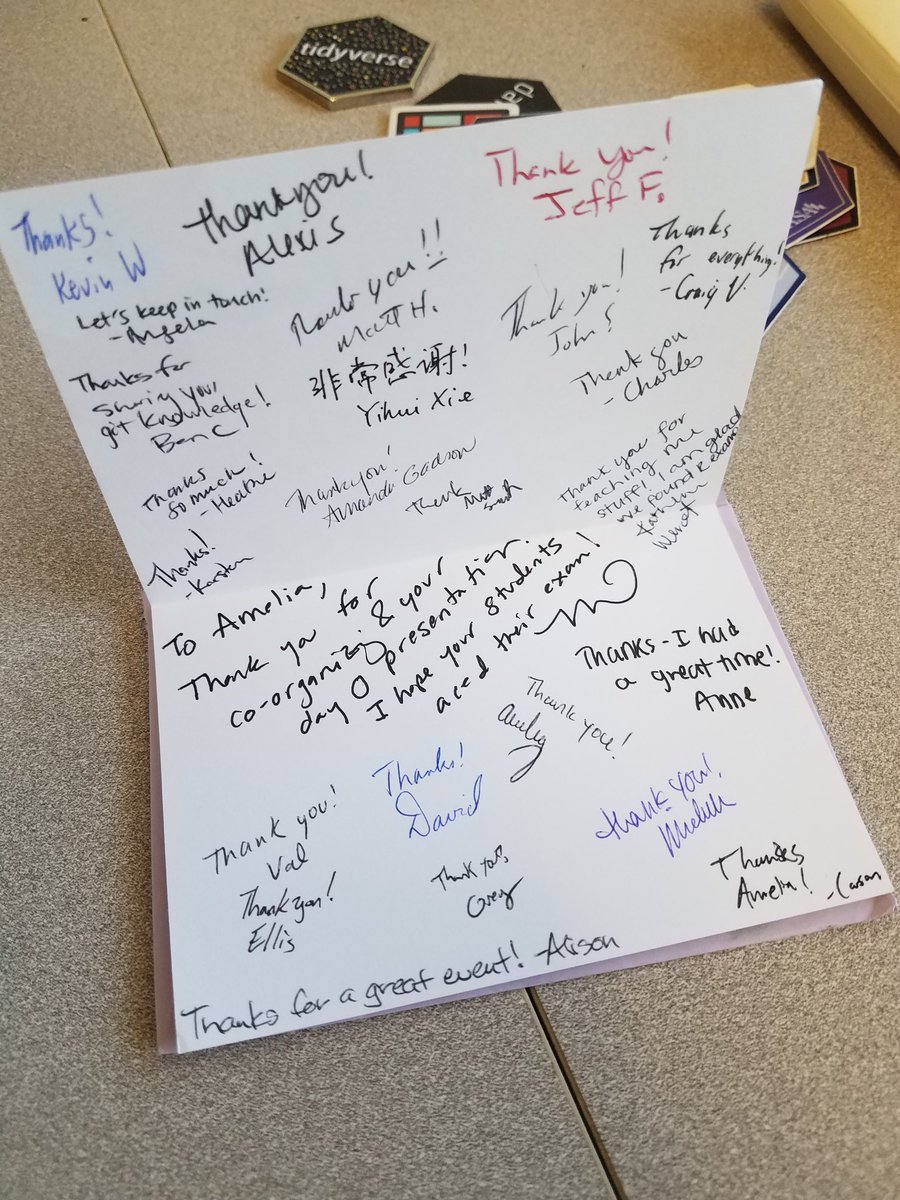 tidyverse
Thanks!
Kevin W
thankyou!
Alexis
Thank you!
Jeff F.
Let's keep in touch!
-Angela
Thank you!!
Matt H.
Thank you!
John S
Thanks
for everything!
-Craig V.
Thanks for
sharing your
git knowledge!
Ben C
非常感谢!
Yihui Xie
Thank you
-Charles
Thanks
so much!
Thank you!
Amanda Gadson
Thank
Thank you for
teaching me
stuff! I am glad
we found
Kathryn
Thanks!
To Amelia,
Thank you for
co-organizing & your
day 0 presentation.
I hope your students
aced their exam!
Thanks - I had
a great time!
Anne
Thank you!
Thanks!
David
Thank you!
Val
Thank you!
Thank you!
Ellis
Thank you,
Greg
Thanks
Amelia!
-Carson
Thanks for a great event! -Alison